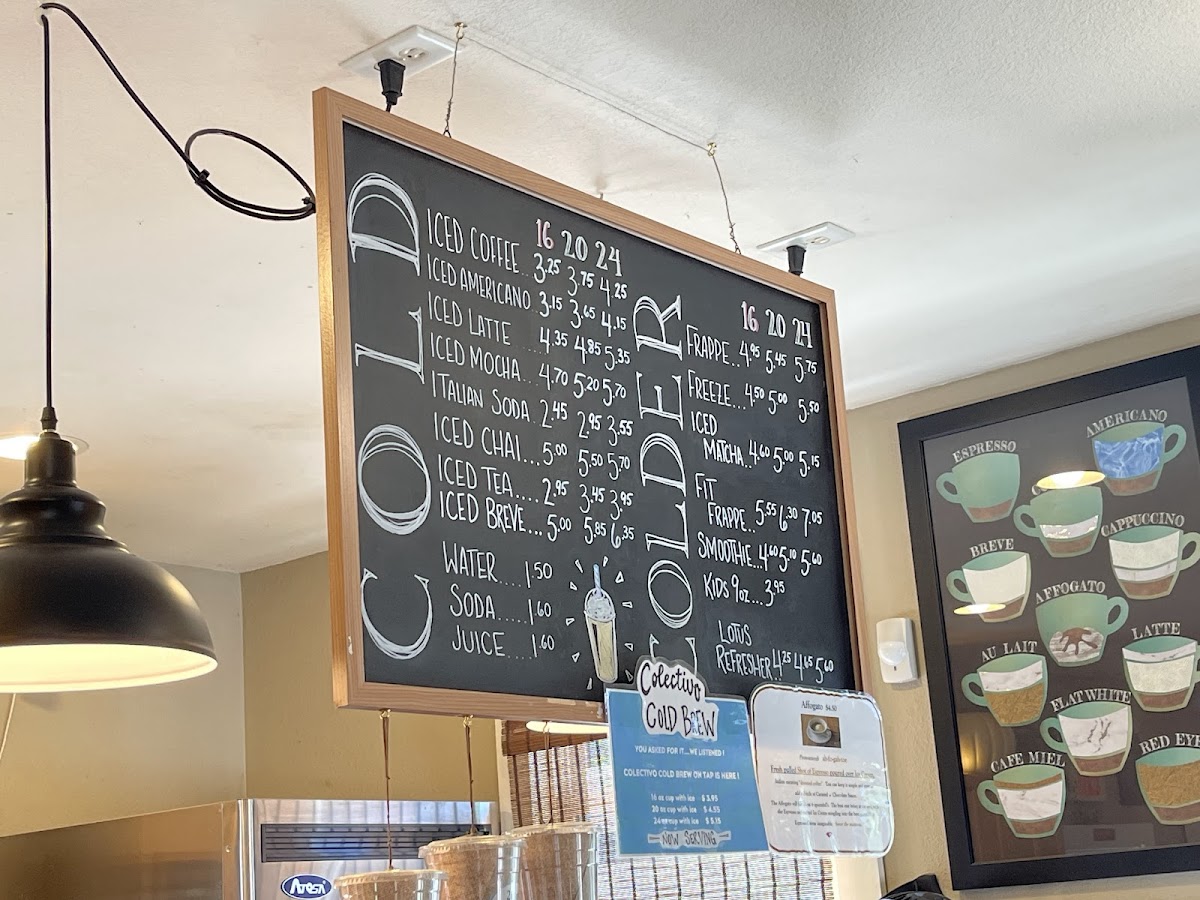 COLD
16 20 24
ICED COFFEE.. 3.25 3.75 4.25
ICED AMERICANO 3.15 3.65 4.15
ICED LATTE ....4.35 4.85 5.35
ICED MOCHA... 4.70 5.20 5.70
ITALIAN SODA. 2.45 2.95 3.55
ICED CHAI...5.00 5.50 5.70
ICED TEA.... 2.95 3.45 3.95
ICED BREVE...5.00 5.85 6.35
WATER....1.50
SODA.....1.60
JUICE....1.60
COLDER
16 20 24
FRAPPE..4.95 5.45 5.75
FREEZE...4.50 5.00 5.50
ICED
MATCHA..4.60 5.00 5.15
FIT
FRAPPE..5.55 6.30 7.05
SMOOTHIE...4.60 5.10 5.60
KIDS 9oz...3.95
LOTUS
REFRESHER 4.25 4.65 5.60
Colectivo
COLD BREW
YOU ASKED FOR IT... WE LISTENED!
COLECTIVO COLD BREW ON TAP IS HERE!
16 oz cup with ice $3.95
20 oz cup with ice
24 oz cup with ice
NOW SERVING
Affogato $4.50
Fresh pulled Shot of Espresso poured over Ice Cream.
Atosa
ESPRESSO
AMERICANO
CAPPUCCINO
BREVE
AFFOGATO
LATTE
AU LAIT
FLAT WHITE
CAFE MIEL
RED EYE